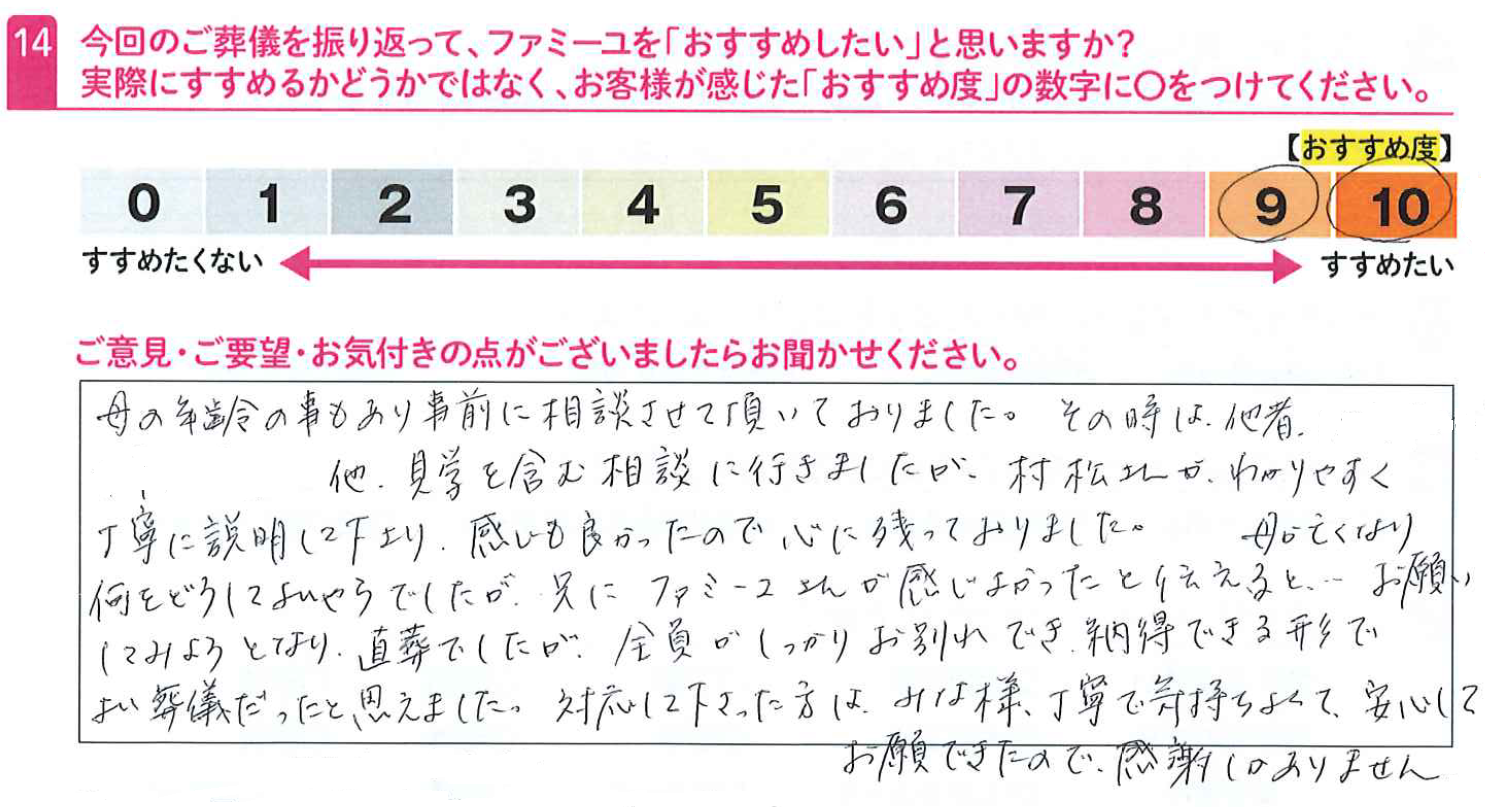 14 今回のご葬儀を振り返って、ファミーユを「おすすめしたい」と思いますか?
実際にすすめるかどうかではなく、お客様が感じた「おすすめ度」の数字に〇をつけてください。
【おすすめ度】
0 1 2 3 4 5 6 7 8 9 10
すすめたくない すすめたい
ご意見・ご要望・お気付きの点がございましたらお聞かせください。
母の年齢の事もあり事前に相談させて頂いておりました。その時は、他者、
他、見学を含む相談に行きましたが、村松さんが、わかりやすく
丁寧に説明して下さり、感じも良かったので心に残っておりました。 母が亡くなり
何をどうしてよいやらでしたが、兄にファミーユさんが感じよかったと伝えると、… お願い
してみようとなり、直葬でしたが、全員がしっかりお別れでき、納得できる形で
よい葬儀だったと思えました。対応して下さった方は、みな様、丁寧で気持ちよくて、安心して
お願できたので、感謝しかありません